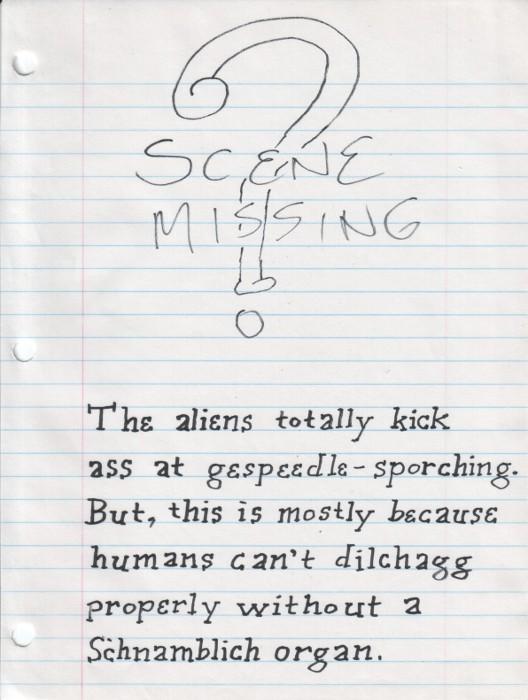 SCENE
MISSING
The aliens totally kick
ass at gespeedle-sporching.
But, this is mostly because
humans can't dilchagg
properly without a
Schnamblich organ.